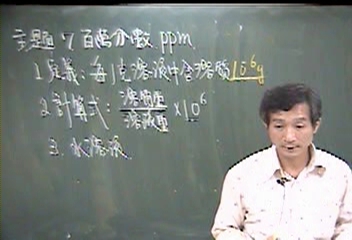 主題7 百萬分數 ppm
1. 定義：每1克溶液中含溶質10⁶g
2. 計算式：溶質重/溶液重 ×10⁶
3. 水溶液